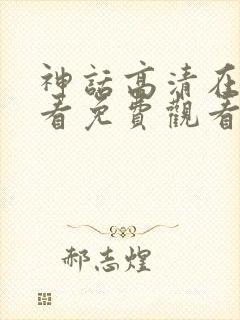 神話高清在
看免費觀看
郝志煌